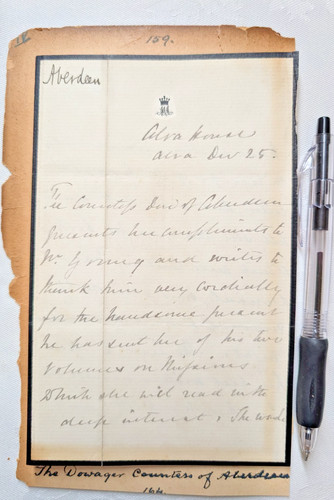 IV
159.
Aberdeen
Alva House
Alva Dec 25.
The Countess Dow of Aberdeen
presents her compliments to
Mr Young and writes to
thank him very cordially
for the handsome present
he has sent her of his two
Volumes on Missions
which she will read with
deep interest. The words
The Dowager Countess of Aberdeen
164.